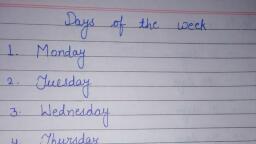 Days of the week
1. Monday
2. Tuesday
3. Wednesday
4 Thursday